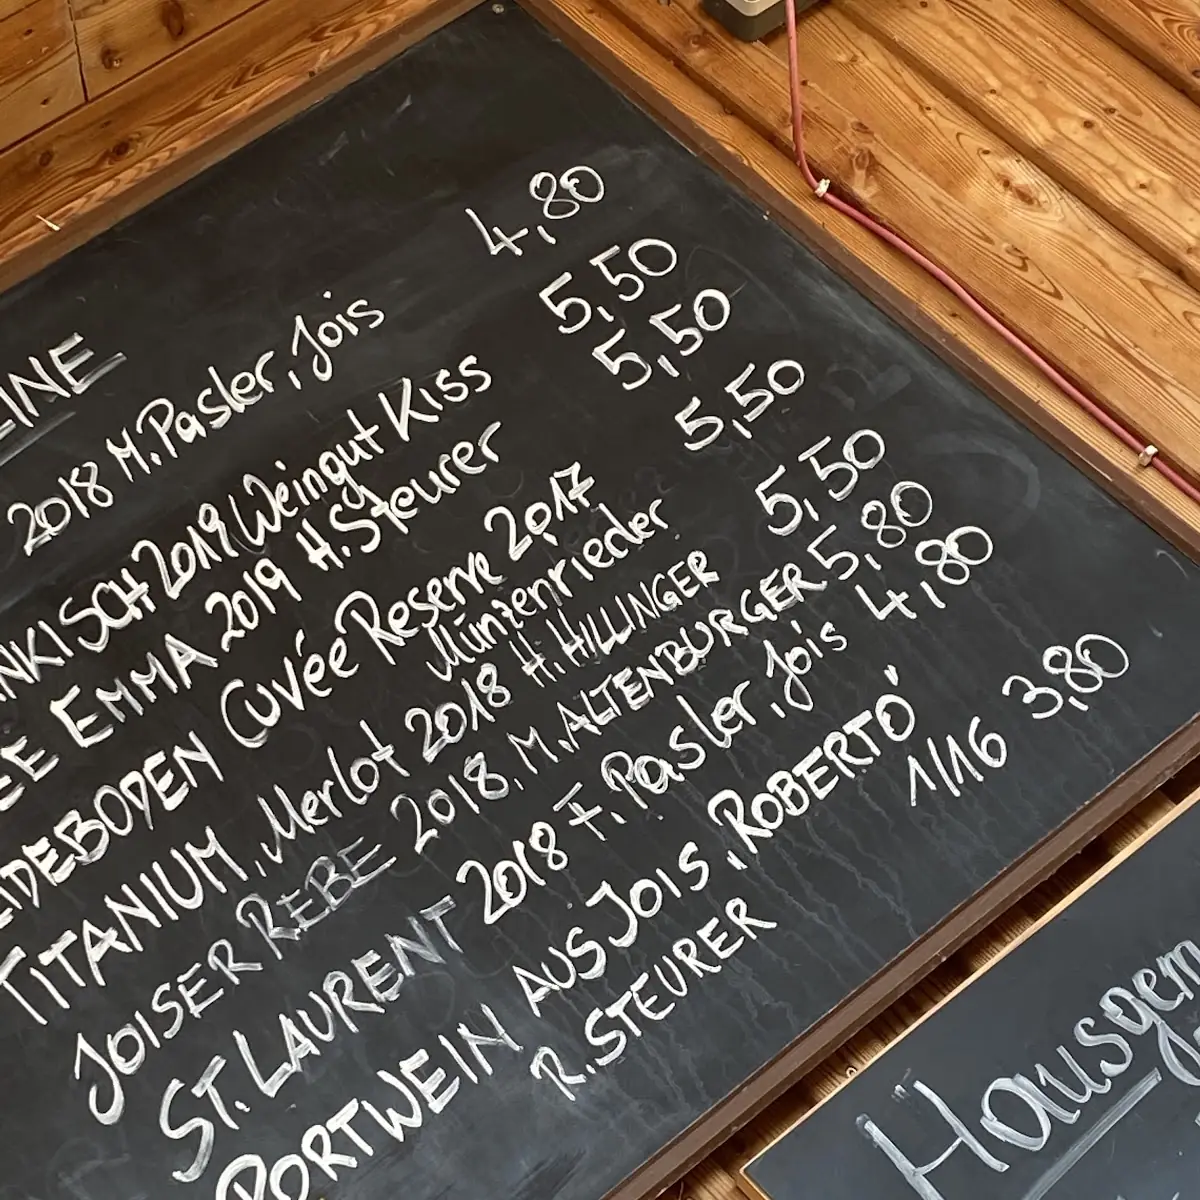 EINE
2018 M. Pasler, Jois 4,80
NKISCH 2019 Weingut Kiss 5,50
EE EMMA 2019 H. Steurer 5,50
ADEBODEN Cuvée Reserve 2017 5,50
Münzenrieder
TITANIUM, Merlot 2018 H. HILLINGER 5,50
JOISER REBE 2018. M. ALTENBURGER 5,80
ST. LAURENT 2018 F. Pasler, Jois 4,80
PORTWEIN AUS JOIS, ROBERTO" 1/16 3,80
R. STEURER
Hausgem